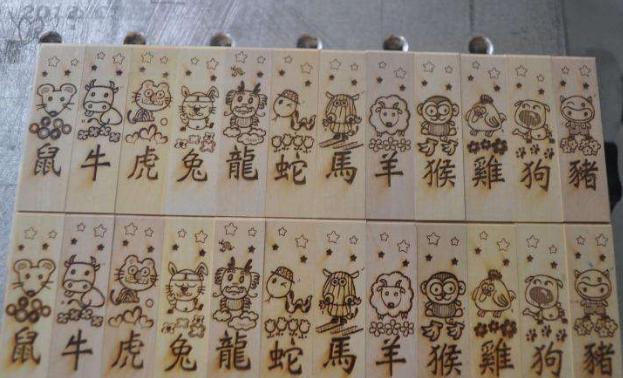 鼠 牛 虎 兔 龍 蛇 馬 羊 猴 雞 狗 豬
鼠 牛 虎 兔 龍 蛇 馬 羊 猴 雞 狗 豬